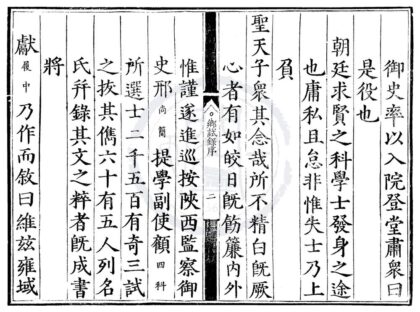 御史率以入院登堂肅衆曰
是役也
朝廷求賢之科學士發身之途
也庸私且怠非惟失士乃上
負
聖天子衆其念哉所不精白旣厥
心者有如皎日旣飭簾內外
鄉試錄序
二
惟謹遂進巡按陝西監察御
史邢尚簡提學副使額四科
所選士二千五百有奇三試
之抜其儁六十有五人列名
氏幷錄其文之粹者旣成書
將
獻履中乃作而敘曰維茲雍域